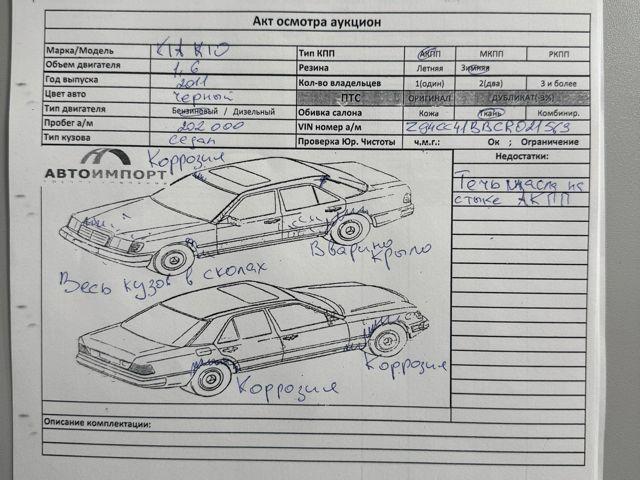 Акт осмотра аукцион
Марка/Модель KIA RIO Тип КПП АКПП МКПП РКПП
Объем двигателя 1,6 Резина Летняя Зимняя
Год выпуска 2011 Кол-во владельцев 1(один) 2(два) 3 и более
Цвет авто Черный ПТС ОРИГИНАЛ ДУБЛИКАТ(-3%)
Тип двигателя Бензиновый / Дизельный Обивка салона Кожа Ткань Комбинир.
Пробег а/м 202 000 VIN номер а/м
Тип кузова Седан Проверка Юр. Чистоты ч.м.г.: Ок ; Ограничение
Коррозия Недостатки:
АВТОИМПОРТ
Течь масла на
стыке АКПП
Вварино
Крыло
Весь кузов в сколах
Коррозия
Коррозия
Описание комплектации: